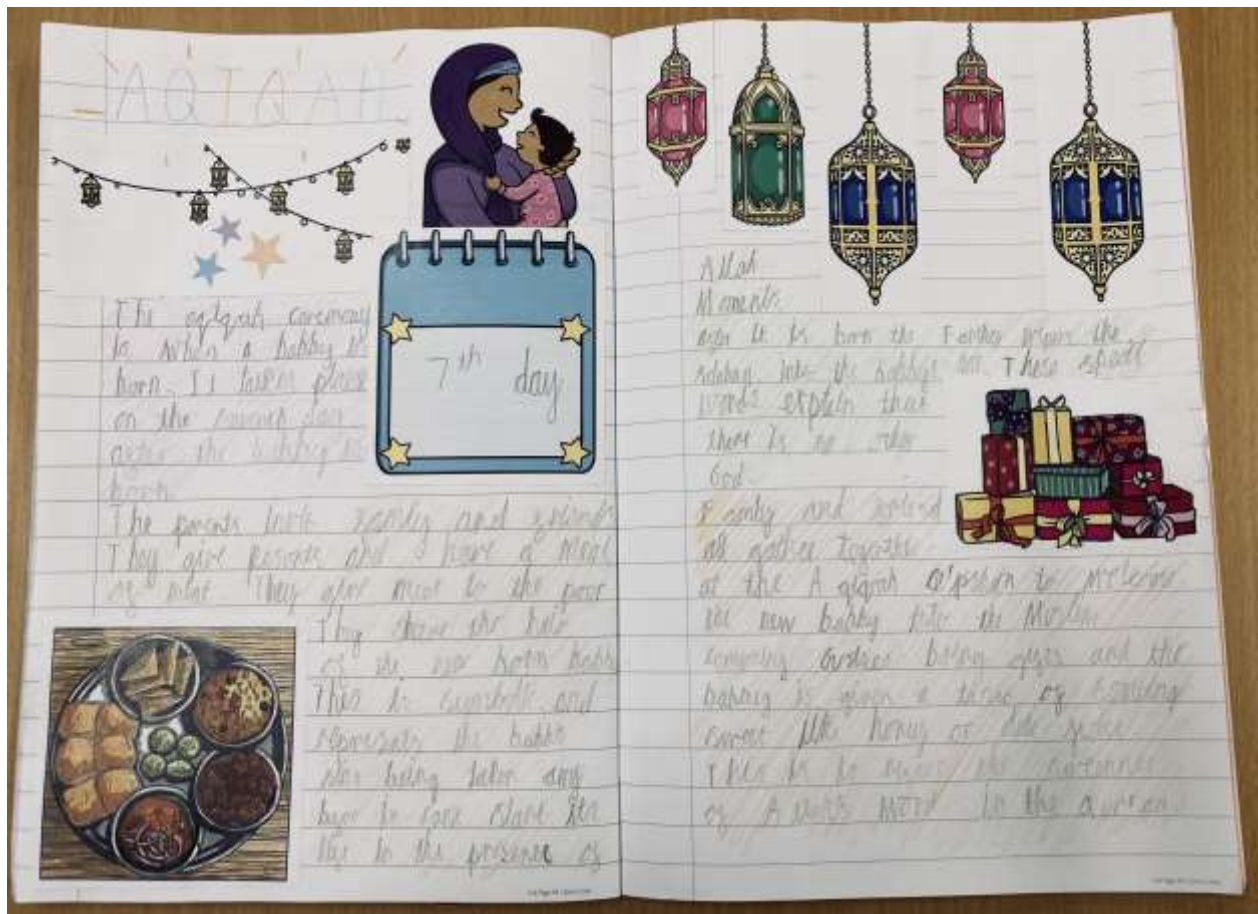 AQIQAH
7th day
The aqiqah ceremony
is when a babby is
born. It takes place
on the seventh day
after the babby is
born.
The parents invite family and friends
They give presents and have a meal
of meat. They give meat to the poor
They shave the hair
of the new born babb
This is symbolic and
represents the babbs
sins being taken away
life in the presence of
Allah
Moments
after it is born the Farther the
adahan into the babbys ear. These
words explain that
there is no other
God.
Family and friend
all gather together
at the Aqiqah to welcome
the new babby into the Muslim
being gifts and the
babby is given a of something
sweet like honey or date
This is to the
of Allah's in the quran